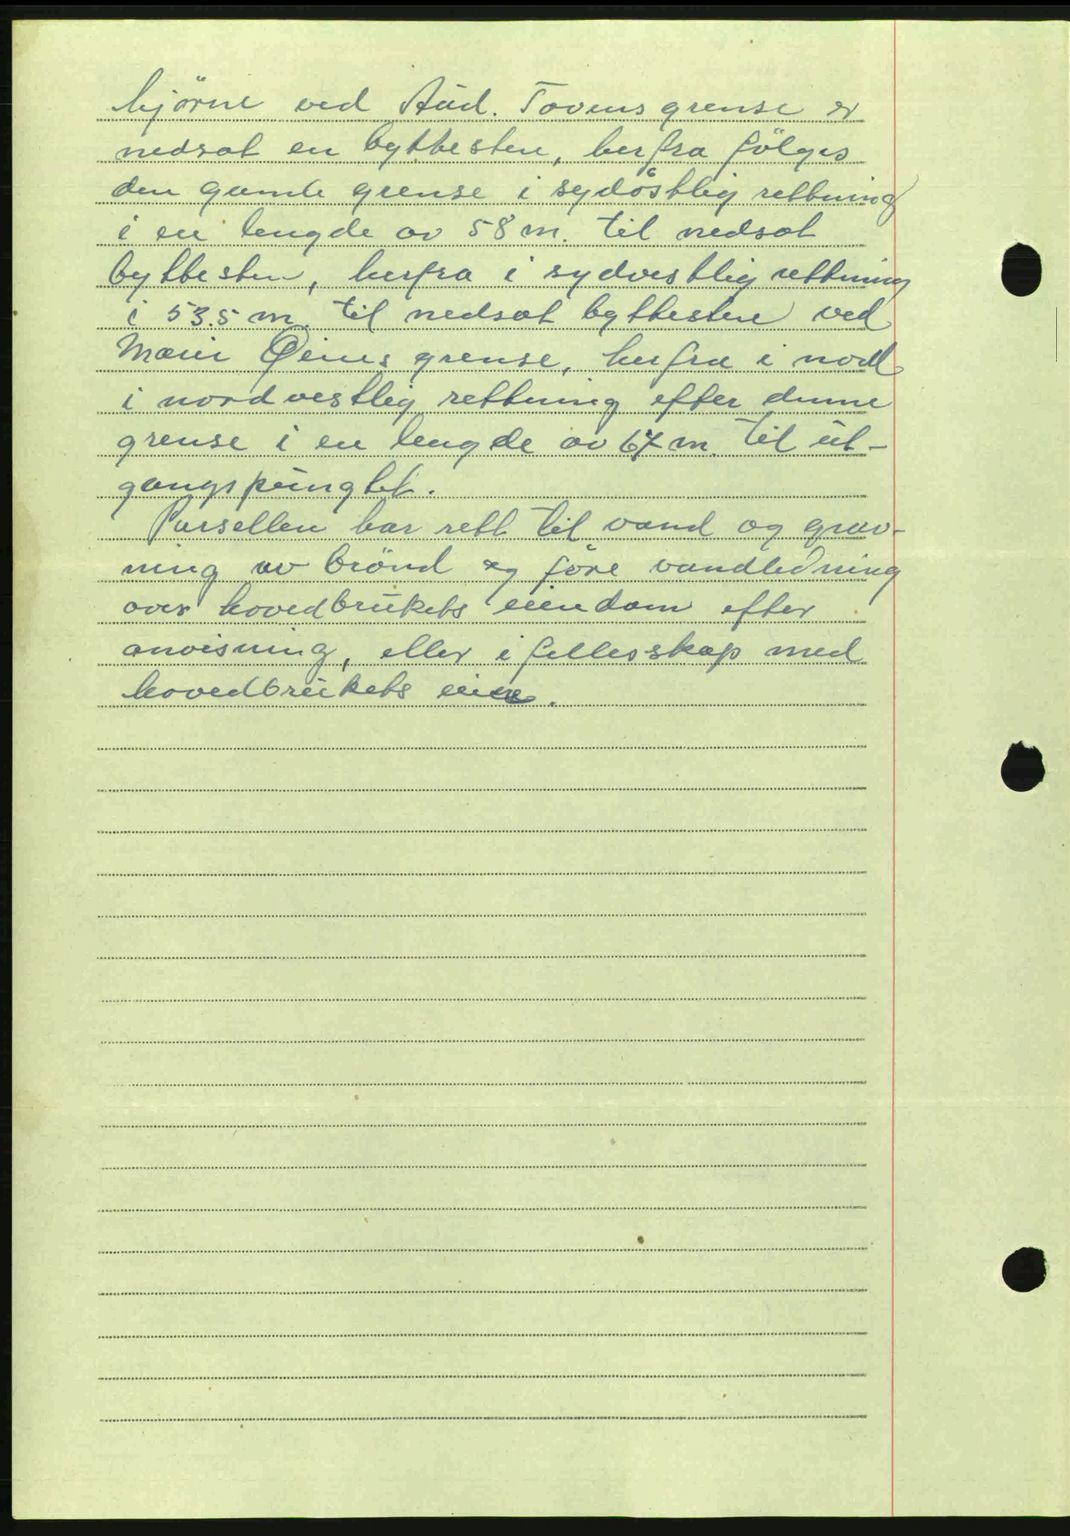 hjörne ved Aud. Tovens grense er
nedsat en byttesten, herfra fölges
den gamle grense i sydöstlig rettning
i en lengde av 58 m. til nedsat
byttesten, herfra i sydvestlig rettning
i 53.5 m. til nedsat byttesten ved
Marie Øeins grense, herfra i nord
i nordvestlig rettning efter denne
grense i en lengde av 67 m. til ut-
gangspungtet.
Parsellen har rett til vand og grav-
ning av brönd og före vandledning
over hovedbrukets eiendom efter
anvisning, eller i fellesskap med
hovedbrukets eier.